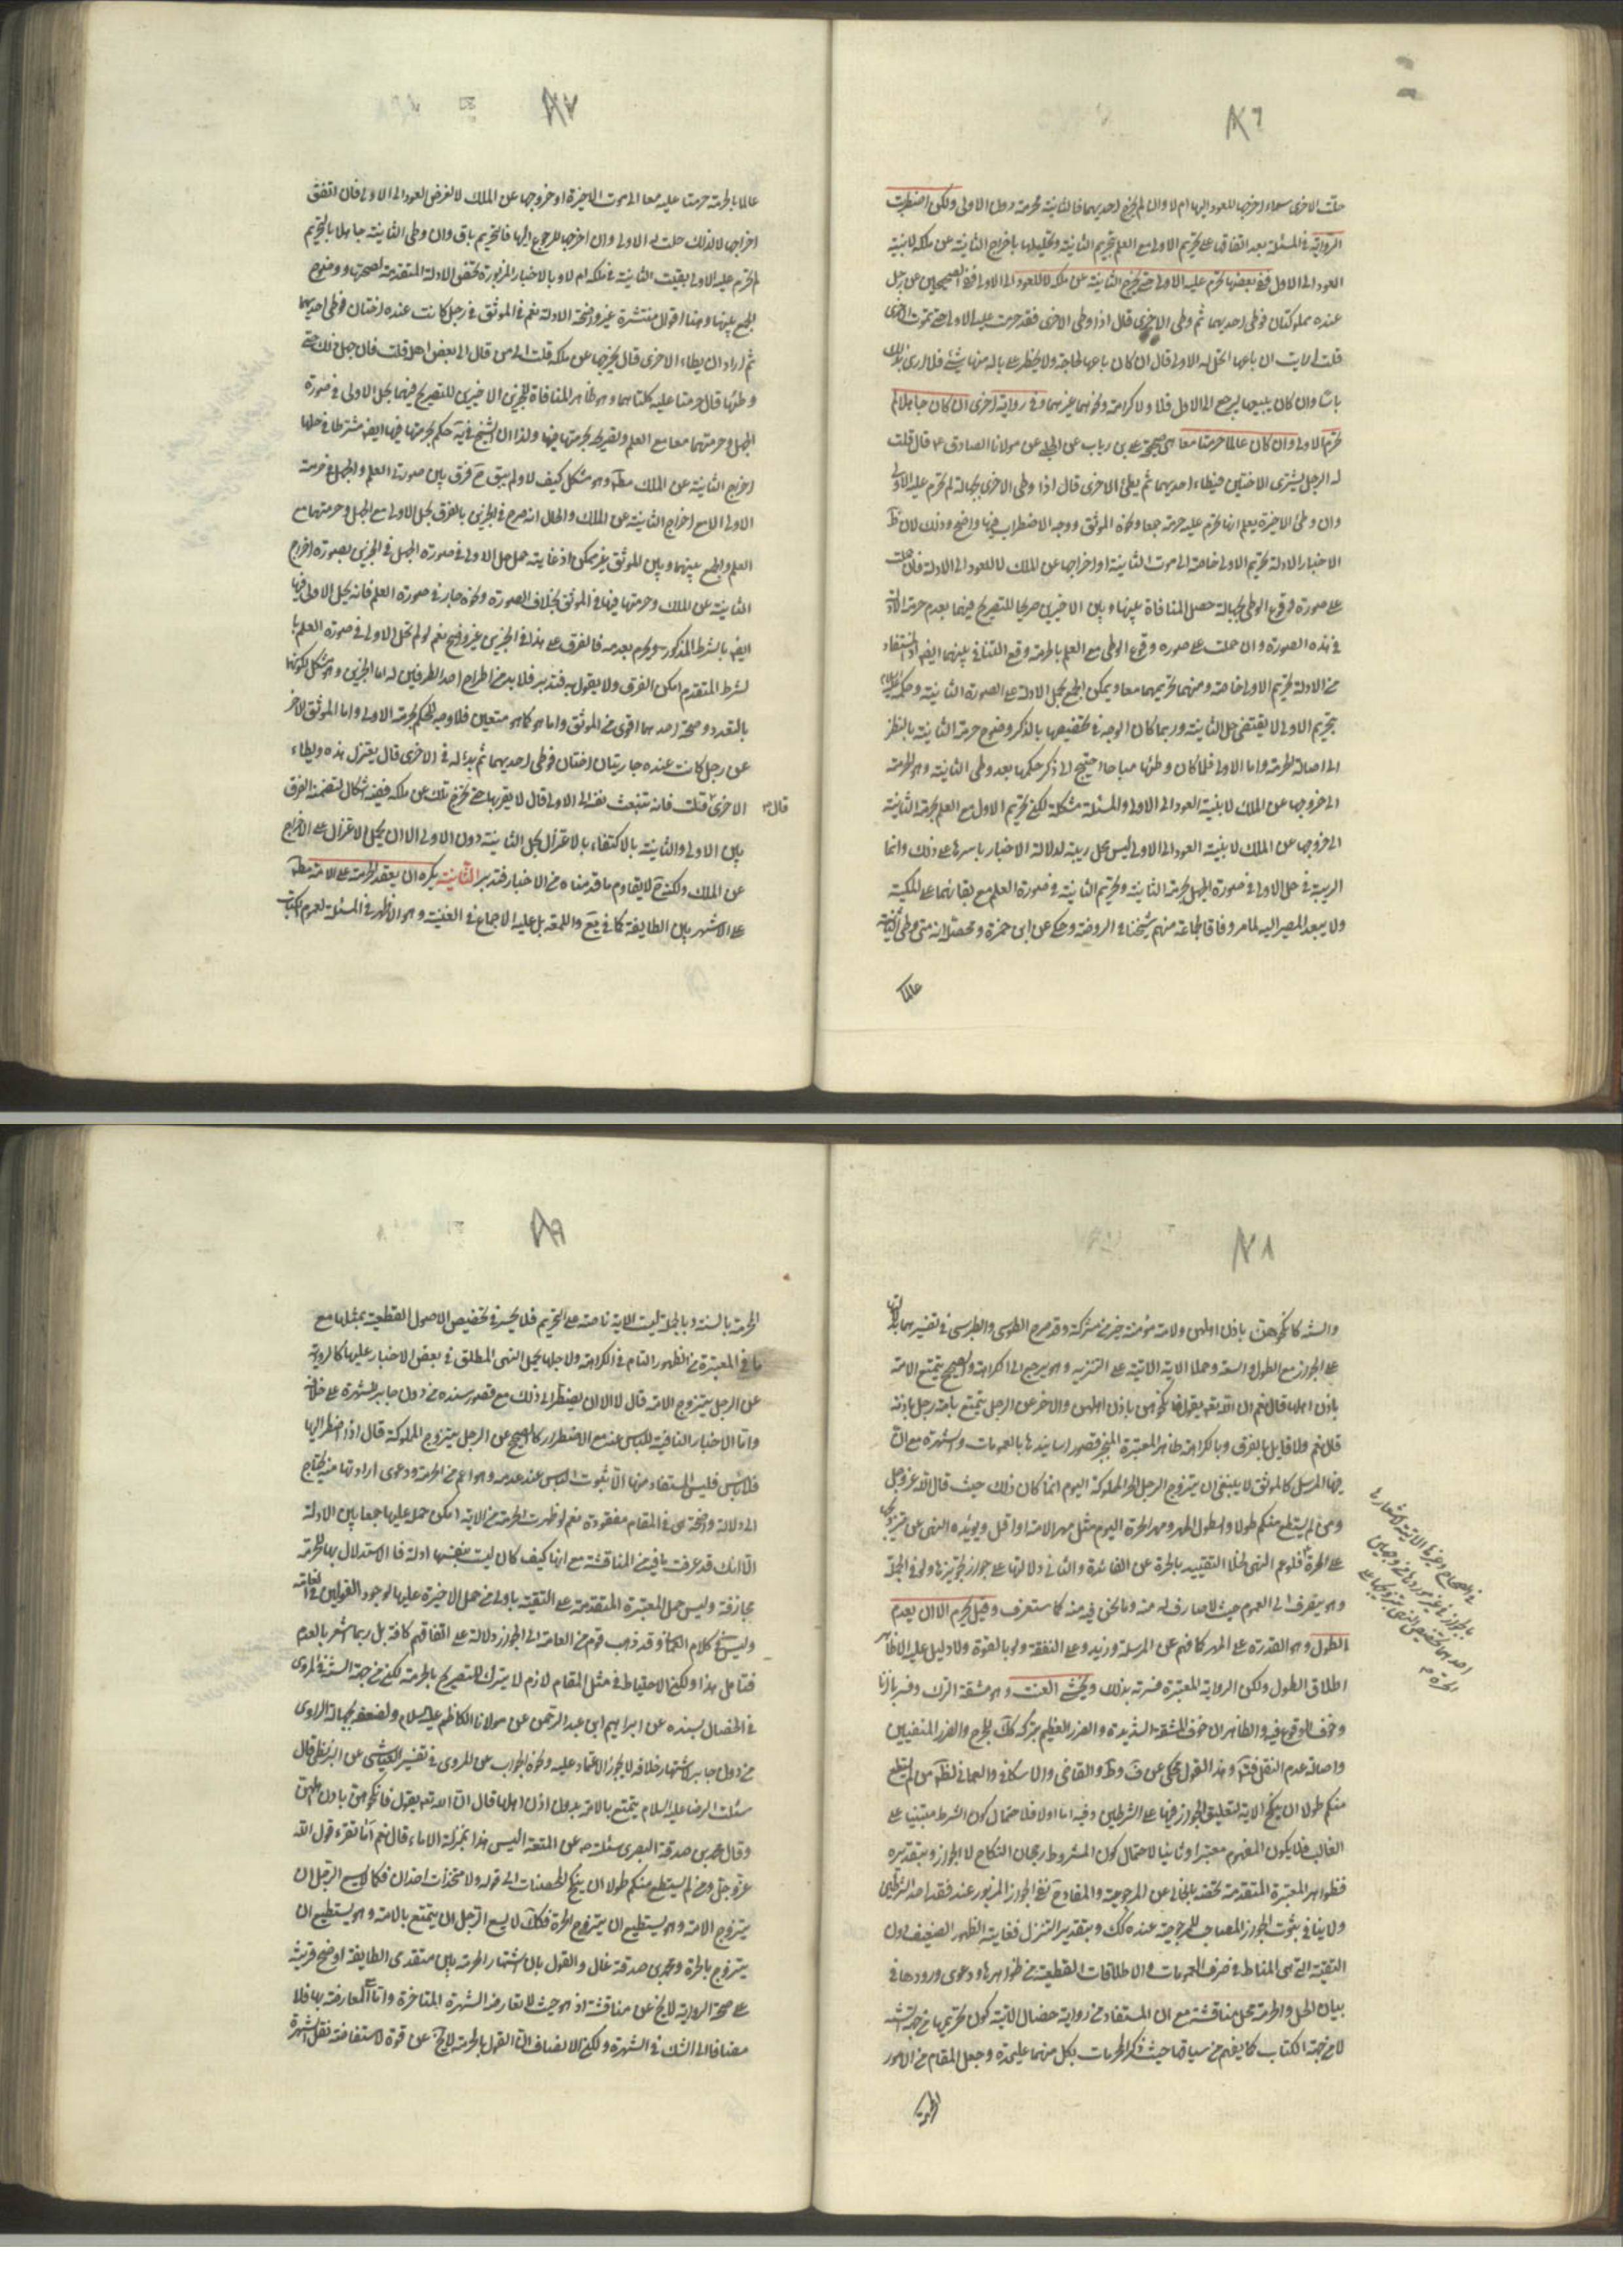 ٨٦
حلت الاخرى سواء اخرجها للعود اليها ام لا وان لم يخرج احديهما فالثانية محرمة دون الاولى ولكن اضطربت
الرواية في المسئلة بعد اتفاق على تحريم الاولى مع العلم بتحريم الثانية وتحليلها باخراج الثانية عن ملكه لا بنية
العود الى الاول ففي بعضها تحرم عليه الاولى حتى يخرج الثانية عن ملكه لا للعود الى الاولى ففي الصحيحين عن رجل
عنده مملوكتان فوطى احديهما ثم وطى الاخرى قال اذا وطى الاخرى فقد حرمت عليه الاولى حتى تموت الاخرى
قلت ارايت ان باعها اتحل له الاولى قال ان كان باعها لحاجة ولا يخطر على باله منها شئ فلا ارى بذلك
باسا وان كان يبيعها ليرجع الى الاول فلا ولا كرامة ونحوهما غيرهما وفي رواية اخرى ان كان جاهلا لم
تحرم الاولى وان كان عالما حرمتا معا هي صحيحة بن رياب عن الحلبي عن مولانا الصادق ع قال قلت
له الرجل يشترى الاختين فيطاء احديهما ثم يطئ الاخرى قال اذا وطى الاخرى بجهالة لم تحرم عليه الاولى
وان وطئ الاخيرة يعلم انها تحرم عليه حرمتا جميعا ونحوه الموثق ووجه الاضطراب فيها واضح وذلك لان ظ
الاخبار الاولة تحريم الاولى خاصة الى موت الثانية او اخراجها عن الملك لا للعود الى الاولة فان حملت
على صورة وقوع الوطى بجهالة حصل المنافاة بينها وبين الاخيرين صريحا للتصريح فيهما بعدم حرمة الاولى
في هذه الصورة وان حملت على صورة وقوع الوطى مع العلم بالحرمة وقع التنافي بينهما ايضا اذ المستفاد
من الاولة تحريم الاولى خاصة ومنهما تحريمهما معا ويمكن الجمع بحمل الاولة على الصورة الثانية وحكمه
بتحريم الاولى لا يقتضى حل الثانية وربما كان الوجه في تخصيصها بالذكر وضوح حرمة الثانية بالنظر
الى اصالة الحرمة واما الاولى فلما كان وطؤها مباحا احتيج الى ذكر حكمها بعد وطى الثانية وهو الحرمة
الى خروجها عن الملك لا بنية العود الى الاولى والمسئلة مشكلة لكن تحريم الاول مع العلم بحرمة الثانية
الى خروجها عن الملك لا بنية العود الى الاولى ليس محل ريبة لدلالة الاخبار باسرها على ذلك وانما
الريبة في حل الاولى في صورة الجهل بحرمة الثانية وتحريم الثانية في صورة العلم مع بقائهما على الملكية
ولا يبعد المصير اليه لما مر وفاقا لجماعة منهم شيخنا في الروضة وحكى عن ابن حمزة ومحصله انه متى وطى الثانية
عالما
٨٧
عالما بالحرمة حرمتا عليه معا الى موت الاخيرة او خروجها عن الملك لا لغرض العود الى الاولى فان اتفق
اخراجها لا لذلك حلت له الاولى وان اخرجها للرجوع اليها فالتحريم باق وان وطى الثانية جاهلا بالتحريم
لم تحرم عليه الاولى بقيت الثانية في ملكه ام لا وبالاخبار المزبورة تخصص الادلة المتقدمة لصحتها ووضوح
الجمع بينها وهنا اقوال منتشرة غير واضحة الادلة نعم في الموثق في رجل كانت عنده اختان فوطى احديهما
ثم اراد ان يطاء الاخرى قال يخرجها عن ملكه قلت الى من قال الى بعض اهله قلت فان جهل ذلك حتى
وطئها قال حرمتا عليه كلتاهما وهو ظاهر المنافاة للخبرين الاخيرين للتصريح فيهما بحل الاولى في صورة
الجهل وحرمتهما معا مع العلم وتصريحه بحرمتها فيها ولذا ان الشيخ في يه حكم بحرمتها فيها ايضا مشترطا في حلها
اخراج الثانية عن الملك مطه وهو مشكل كيف لا ولم يبق ح فرق بين صورتى العلم والجهل في حرمة
الاولى الا مع اخراج الثانية عن الملك والحال انه صرح في الخبرين بالفرق بحل الاولى مع الجهل وحرمتها مع
العلم والجمع بينهما وبين الموثق غير ممكن اذ غايته حمل حل الاولى في صورة الجهل في الخبرين بصورة اخراج
الثانية عن الملك وحرمتها فيها في الموثق بخلاف الصورة ونحوه جار في صورة العلم فانه يحل الاولى فيها
ايضا بالشرط المذكور وتحرم بعدمه فالفرق على هذا في الخبرين غير واضح نعم لو لم تحل الاولى في صورة العلم با
لشرط المتقدم امكن الفرق ولا يقول به فتدبر فلا بد من اطراح احد الطرفين له اما الخبرين وهو مشكل لكونهما
بالتعدد وصحة احدهما اقوى من الموثق واما هو كما هو متعين فلا وجه للحكم بحرمة الاولى واما الموثق الاخر
عن رجل كانت عنده جاريتان اختان فوطى احديهما ثم بدا له في الاخرى قال يعتزل هذه ويطاء
الاخرى قلت فانه تنبعث نفسه الى الاولى قال لا يقربها حتى تخرج تلك عن ملكه ففيه اشكال لتضمنه الفرق
قال
بين الاولى والثانية بالاكتفاء بالاعتزال بحل الثانية دون الاولى الا ان يحمل الاعتزال على الاخراج
عن الملك ولكنه ح لا يقاوم ما قدمناه من الاخبار فتدبر الثانية يكره ان يعقد الحر على الامة مطه
على الاشهر بين الطايفة كما في يع واللمعة بل عليه الاجماع في الغنية وهو الاظهر في المسئلة لعموم الكتاب
٨٨
والسنة كانكحوهن باذن اهلهن ولامة مؤمنة خير من مشركة وقد صرح الطوسي والطبرسي في تفسيرهما بدلالتها
على الجواز مع الطول والسعة وحملا الاية الاتية على التنزيه وهو يرجع الى الكراهة والصحيح يتمتع الامة
باذن اهلها قال نعم ان الله تعه يقول فانكحوهن باذن اهلهن والاخر عن الرجل يتمتع بامة رجل باذنه
قال نعم ولا قايل بالفرق وبالكراهة ظاهر المعتبرة المنجبر قصور اسانيدها بالعمومات والشهرة مع ان
فيها المرسل كالموثق لا ينبغي ان يتزوج الرجل الحر المملوكة اليوم انما كان ذلك حيث قال الله عز وجل
ومن لم يستطع منكم طولا والطول المهر ومهر الحرة اليوم مثل مهر الامة او اقل ويؤيده النهى عن تزويجها
على الحرة فلو عم النهى لخلا التقييد بالحرة عن الفائدة والثاني دلالتها على جواز تجويزها ولو في الجملة
وهو ينصرف الى العموم حيث لا صارف له منه وما نحن فيه منه كما ستعرف وقيل يحرم الا ان يعدم
الطول وهو القدرة على المهر كما فهم عن المرسلة وزيد وعلى النفقة ولو بالقوة ولا دليل عليه الا ظاهر
اطلاق الطول ولكن الرواية المعتبرة فسرته بذلك ويخشى العنت وهو مشقة الترك وفسر بالزنا
وخوف الوقوع فيه والظاهر ان خوف المشقة الشديدة والضرر العظيم بتركه كك للحرج والضرر المنفيين
واصالة عدم النقل فتة وهذا القول محكى عن ف وط والقاضى والاسكافي والعماني لظه من لم يستطع
منكم طولا ان ينكح الاية لتعليق الجواز فيها على الشرطين وفيه اما اولا فلاحتمال كون الشرط مبتنيا على
الغالب فلا يكون المفهوم معتبرا وثانيا لاحتمال كون المشروط رجحان النكاح لا الجواز وبتقديره
فظواهر المعتبرة المتقدمة تحققه بالخالى عن المرجوحية والمفاد ح نفي الجواز المزبور عند فقد احد الشرطين
ولا ينافي بثبوت الجواز المصاحب للمرجوحية عنده كك وبتقدير التنزل فغايته الظهور الضعيف لون
التقية التى هى المناط في صرف العمومات والاطلاقات القطعية من ظواهرها ودعوى ورودها في
بيان الحل والحرمة محل مناقشة مع ان المستفاد من رواية خصال الاتية كون تحريمها من جهة السنة
لا من جهة الكتاب كما يفهم من سياقها حيث ذكر المحرمات بكل منهما عليحدة وجعل المقام من الامور
المحرمة
٨٩
المحرمة بالسنة وبالجملة ليست الاية ناصة على التحريم فلا يجسر في تخصيص الاصول القطعية بمثلها مع
ما في المعتبرة من الظهور التام في الكراهة ولاجلها يحمل النهى المطلق في بعض الاخبار عليها كالمروية
عن الرجل يتزوج الامة قال لا الا ان يضطر الى ذلك مع قصور سنده من دون جابر للشهرة على خلافه
واما الاخبار النافية للباس عنه مع الاضطرار كالصحيح عن الرجل يتزوج المملوكة قال اذا اضطر اليها
فلا باس فليس المستفاد منها الا ثبوت الباس عند عدمه وهو اعم من الحرمة ودعوى ارادتها منه يحتاج
الى دلالة واضحة هى في المقام مفقودة نعم لو ظهرت الحرمة من الاية امكن حملها عليها جمعا بين الادلة
الا انك قد عرفت ما فيه من المناقشة مع انها كيف كان ليست بنفسها ادلة فالاستدلال بها للحرمة
مجازفة وليس حمل المعتبرة المتقدمة على التقية باولى من حمل الاخيرة عليها لوجود القولين في العامة
وليس في كلام الكنز وقد ذهب قوم من العامة الى الجواز دلالة على اتفاقهم كافة بل ربما اشعر بالعدم
فتامل هذا ولكن الاحتياط في مثل المقام لازم لا يترك للتصريح بالحرمة لكن من جهة السنة في المروى
في الخصال بسنده عن ابراهيم ابن عبد الرحمن عن مولانا الكاظم عليه السلام ولضعفه بجهالة الراوى
من دون جابر لاشتهار خلافه لا يجوز الاعتماد عليه ونحوه الجواب عن المروى في تفسير العياشى عن البزنطى قال
سئلت الرضا عليه السلام يتمتع بالامة بدون اذن اهلها قال لا ان الله تعه يقول فانكحوهن باذن اهلهن
وقال محمد بن صدقة البصرى سئلته عن المتعة اليس هذا بمنزلة الاماء قال نعم اما تقرء قول الله
عز وجل ومن لم يستطع منكم طولا ان ينكح المحصنات الى قوله ولا متخذات اخدان فكما لا يسع الرجل ان
يتزوج الامة وهو يستطيع ان يتزوج الحرة فكك لا يسع الرجل ان يتمتع بالامة وهو يستطيع ان
يتزوج بالحرة ومحمد بن صدقة غال والقول بان اشتهار الحرمة بين متقدمى الطايفة اوضح قرينة
على صحة الرواية لا يخ عن مناقشة اذ هو حيث لا تعارضه الشهرة المتاخرة واما مع المعارضة بها فلا
مضافا الى الشك في الشهرة ولكن الانصاف ان القول بالحرمة لا يخ عن قوة لاستفاضة نقل الشهرة